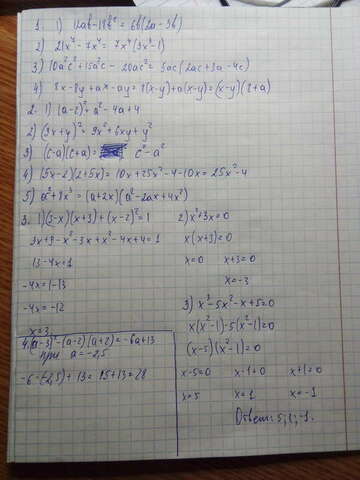 1. 1) 12ab-18b²=6b(2a-3b)
2) 21x⁷-7x⁴=7x⁴(3x³-1)
3) 10a²c²+15a²c-20ac²=5ac(2ac+3a-4c)
4) 8x-8y+ax-ay=8(x-y)+a(x-y)=(x-y)(8+a)
2. 1) (a-2)²=a²-4a+4
2) (3x+y)²=9x²+6xy+y²
3) (c-a)(c+a)= c²-a²
4) (5x-2)(2+5x)=10x+25x²-4-10x=25x²-4
5) a³+8x³=(a+2x)(a²-2ax+4x²)
3. 1)(3-x)(x+3)+(x-2)²=1
3x+9-x²-3x+x²-4x+4=1
13-4x=1
-4x=1-13
-4x=-12
x=3
2) x²+3x=0
x(x+3)=0
x=0 x+3=0
x=-3
3) x³-5x²-x+5=0
x(x²-1)-5(x²-1)=0
(x-5)(x²-1)=0
x-5=0 x-1=0 x+1=0
x=5 x=1 x=-1
Ответ: 5; 1; -1.
4. (a-3)²-(a-2)(a+2)=-6a+13
при a=-2,5
-6·(-2,5)+13=15+13=28